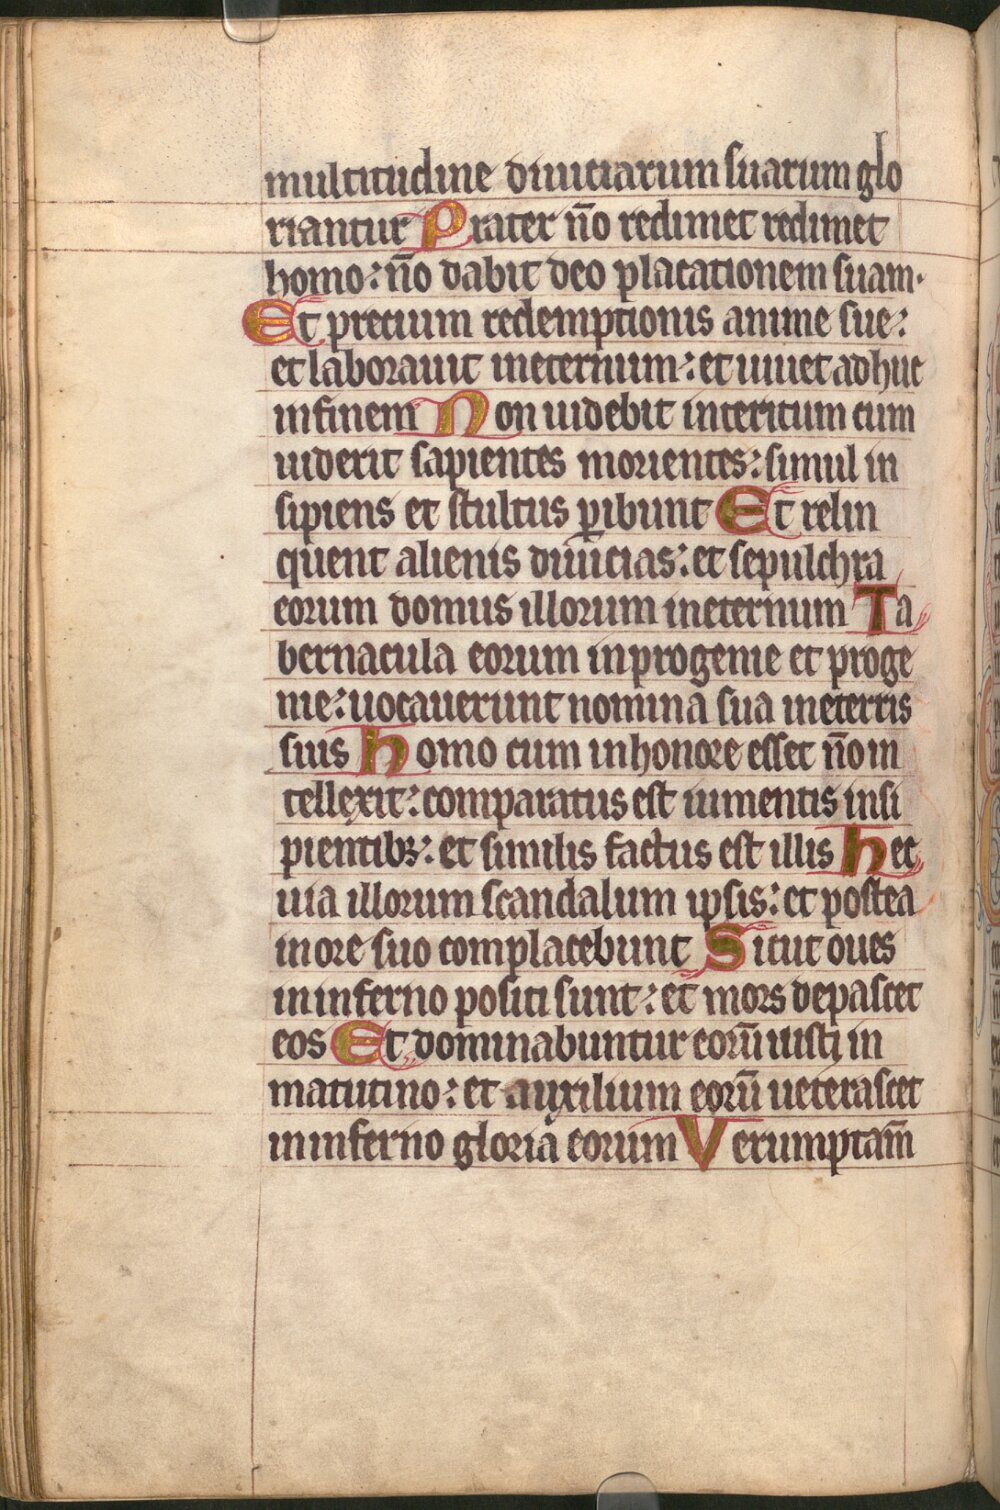 multitudine diuiciarum suarum glo
riantur Prater n̄o redimet redimet
homo: n̄o dabit deo placationem suam.
Et precium redemptionis anime sue:
et laborauit ineternum: et uiuet adhuc
infinem Non uidebit interitum cum
uiderit sapientes morientes: simul in
sipiens et stultus ꝑibunt Et relin
quent alienis diuicias: et sepulchra
eorum domus illorum ineternum Ta
bernacula eorum inprogenie et proge
nie: uocauerunt nomina sua ineterris
suis Homo cum inhonore esset n̄o in
tellexit: comparatus est iumentis insi
pientibꝫ: et similis factus est illis Hec
uia illorum scandalum ipsis: et postea
inore suo complacebunt Sicut oues
ininferno positi sunt: et mors depascet
eos Et dominabuntur eorū iusti in
matutino: et auxilium eorū ueterascet
ininferno gloria eorum Verumptam̄